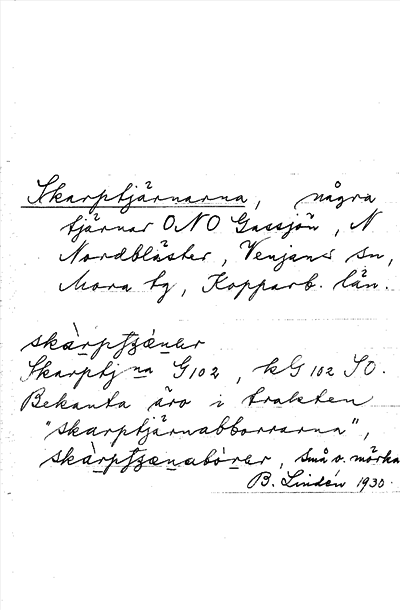 Skarptjärnarna, några
tjärnar ONO Gassjön, N
Nordbläster, Venjans sn,
Mora tg, Kopparb. län.
skàrptʃænar
Skarptjna G102, kG 102 SO.
Bekanta äro i trakten
"skarptjärnabborrarna",
skàrptʃænabòrar, små o. mörka
B. Lindén 1930.